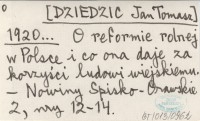 [DZIEDZIC Jan Tomasz]
1920... O reformie rolnej
w Polsce i co ona daje za
korzyści ludowi wiejskiemu.
- Nowiny Spisko-Orawskie
2, nry 12-14.